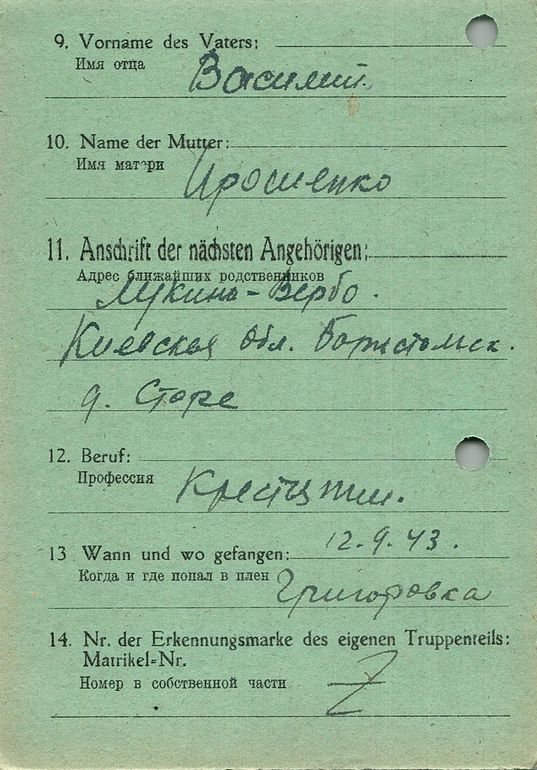 9. Vorname des Vaters:
Имя отца
Василий
10. Name der Mutter:
Имя матери
Ирошенко
11. Anschrift der nächsten Angehörigen:
Адрес ближайших родственников
Вербо.
Киевская Обл.
д. Старе
12. Beruf:
Профессия
13 Wann und wo gefangen:
12.9.43.
Когда и где попал в плен
Григоровка
14. Nr. der Erkennungsmarke des eigenen Truppenteils:
Matrikel-Nr.
Номер в собственной части